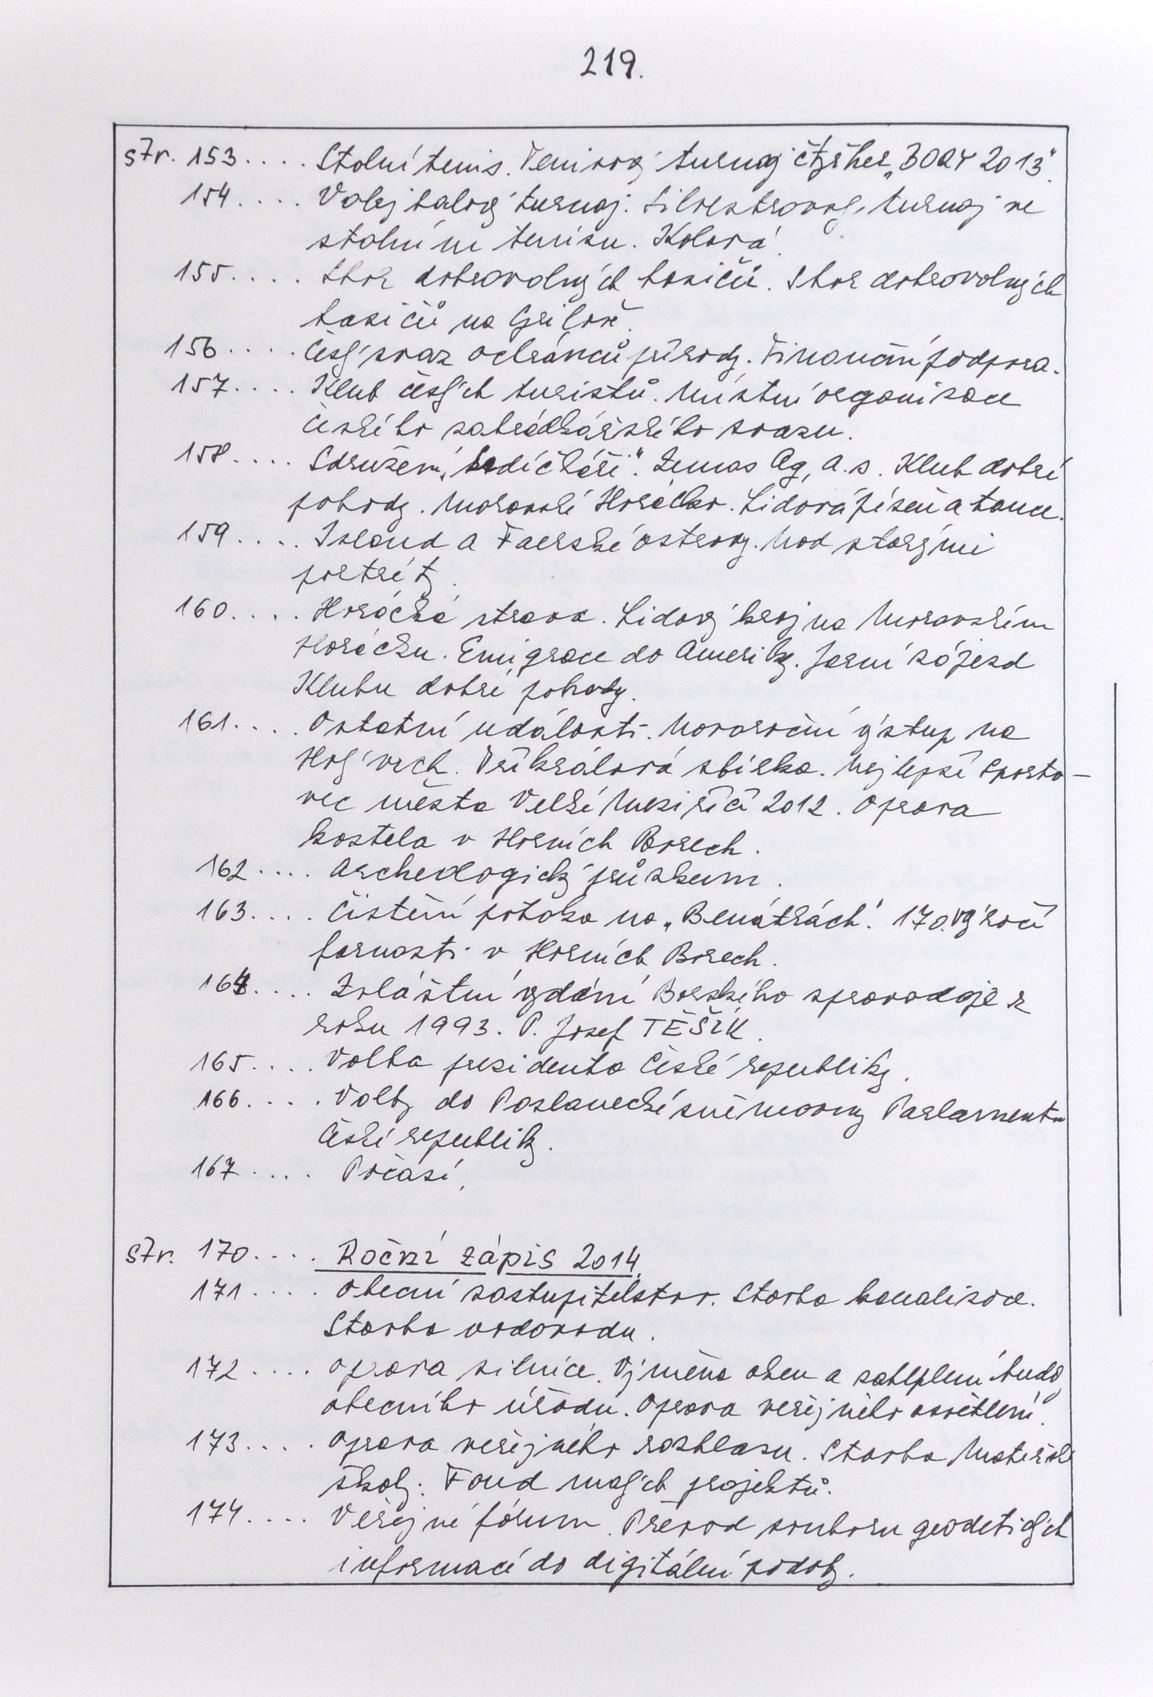 219.
str. 153.... Stolní tenis. Tenisový turnaj čtyřher „BORY 2013".
154.... Volejbalový turnaj. Silvestrovský turnaj ve
stolním tenisu. Kolová.
155.... Sbor dobrovolných hasičů. Sbor dobrovolných
hasičů na
156.... Český svaz ochránců přírody. Finanční podpora.
157.... Klub českých turistů. Místní organizace
Českého zahrádkářského svazu.
158.... Sdružení „Srdíčkáři". Zemas Ag, a.s. Klub dobré
pohody. Moravské Horácko. Lidová píseň a tance.
159.... Island a Faerské ostrovy. Nad starými
portréty.
160.... Horácká strava. Lidový kroj na Moravském
Horácku. Emigrace do Ameriky. Jarní zájezd
Klubu dobré pohody.
161.... Ostatní události. Novoroční výstup na
Holý vrch. Tříkrálová sbírka. Nejlepší sporto-
vec města Velké Meziříčí 2012. Oprava
kostela v Horních Borech.
162.... Archeologický průzkum.
163.... Čistění potoka na „Benátkách". 170. výročí
farnosti v Horních Borech.
164.... Zvláštní vydání Borského zpravodaje z
roku 1993. P. Josef TĚŠÍK.
165.... Volba presidenta České republiky.
166.... Volby do Poslanecké sněmovny Parlamentu
České republiky.
167.... Počasí.
str. 170.... Roční zápis 2014
171.... Obecní zastupitelstvo. Stavba kanalizace.
Stavba vodovodu.
172.... Oprava silnice. Výměna oken a zateplení budo
obecního úřadu. Oprava veřejného osvětlení.
173.... Oprava veřejného rozhlasu. Stavba Mateřské
školy. Fond malých projektů.
174.... Veřejné fórum. Převod souboru geodetických
informací do digitální podoby.